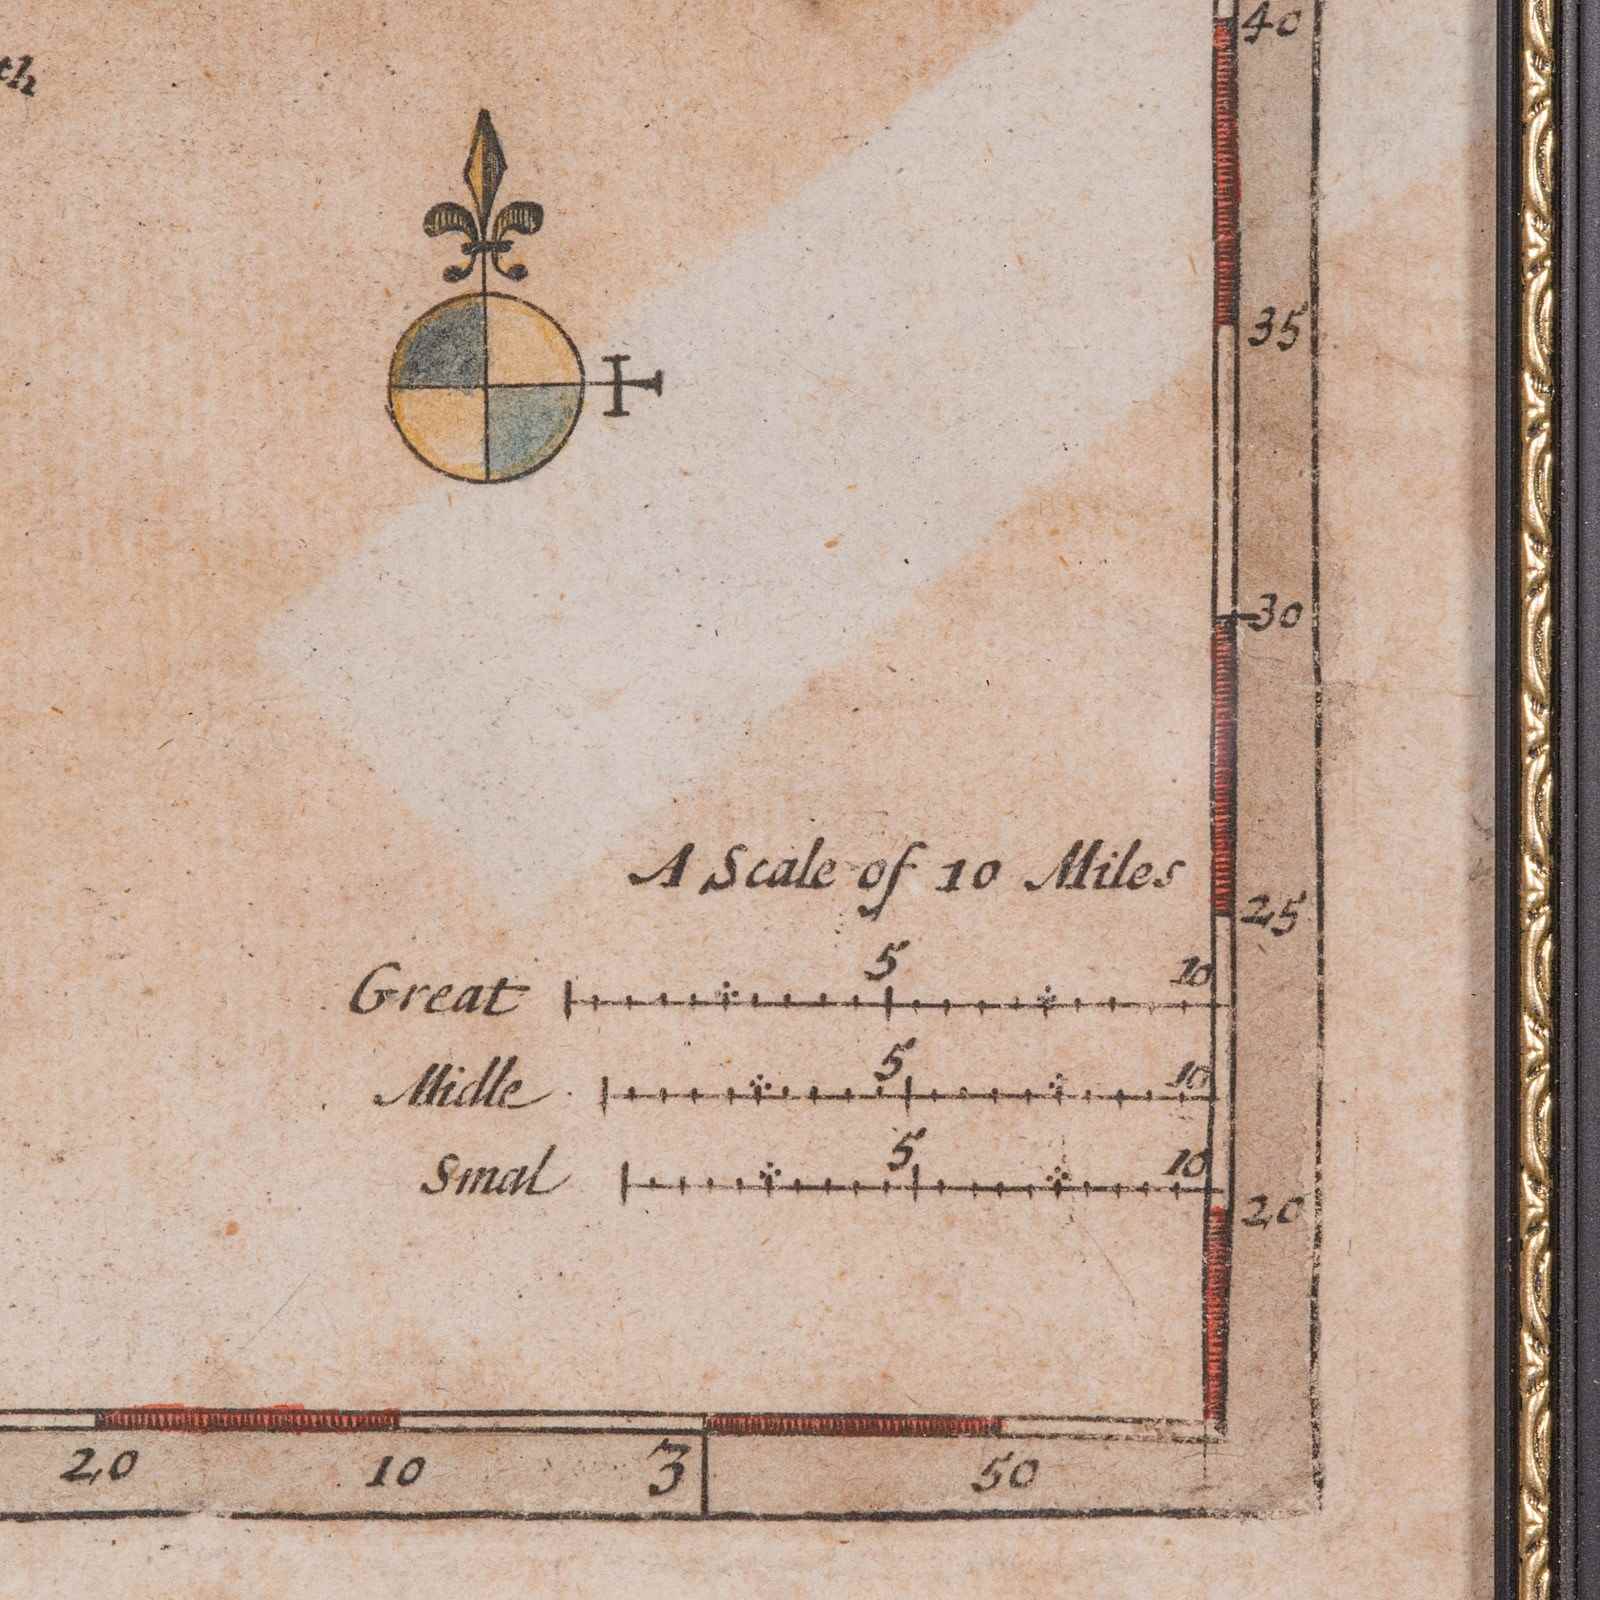 40
35
30
A Scale of 10 Miles
25
5 10
Great
5 10
Midle
5 10
Smal
20
20 10 3 50